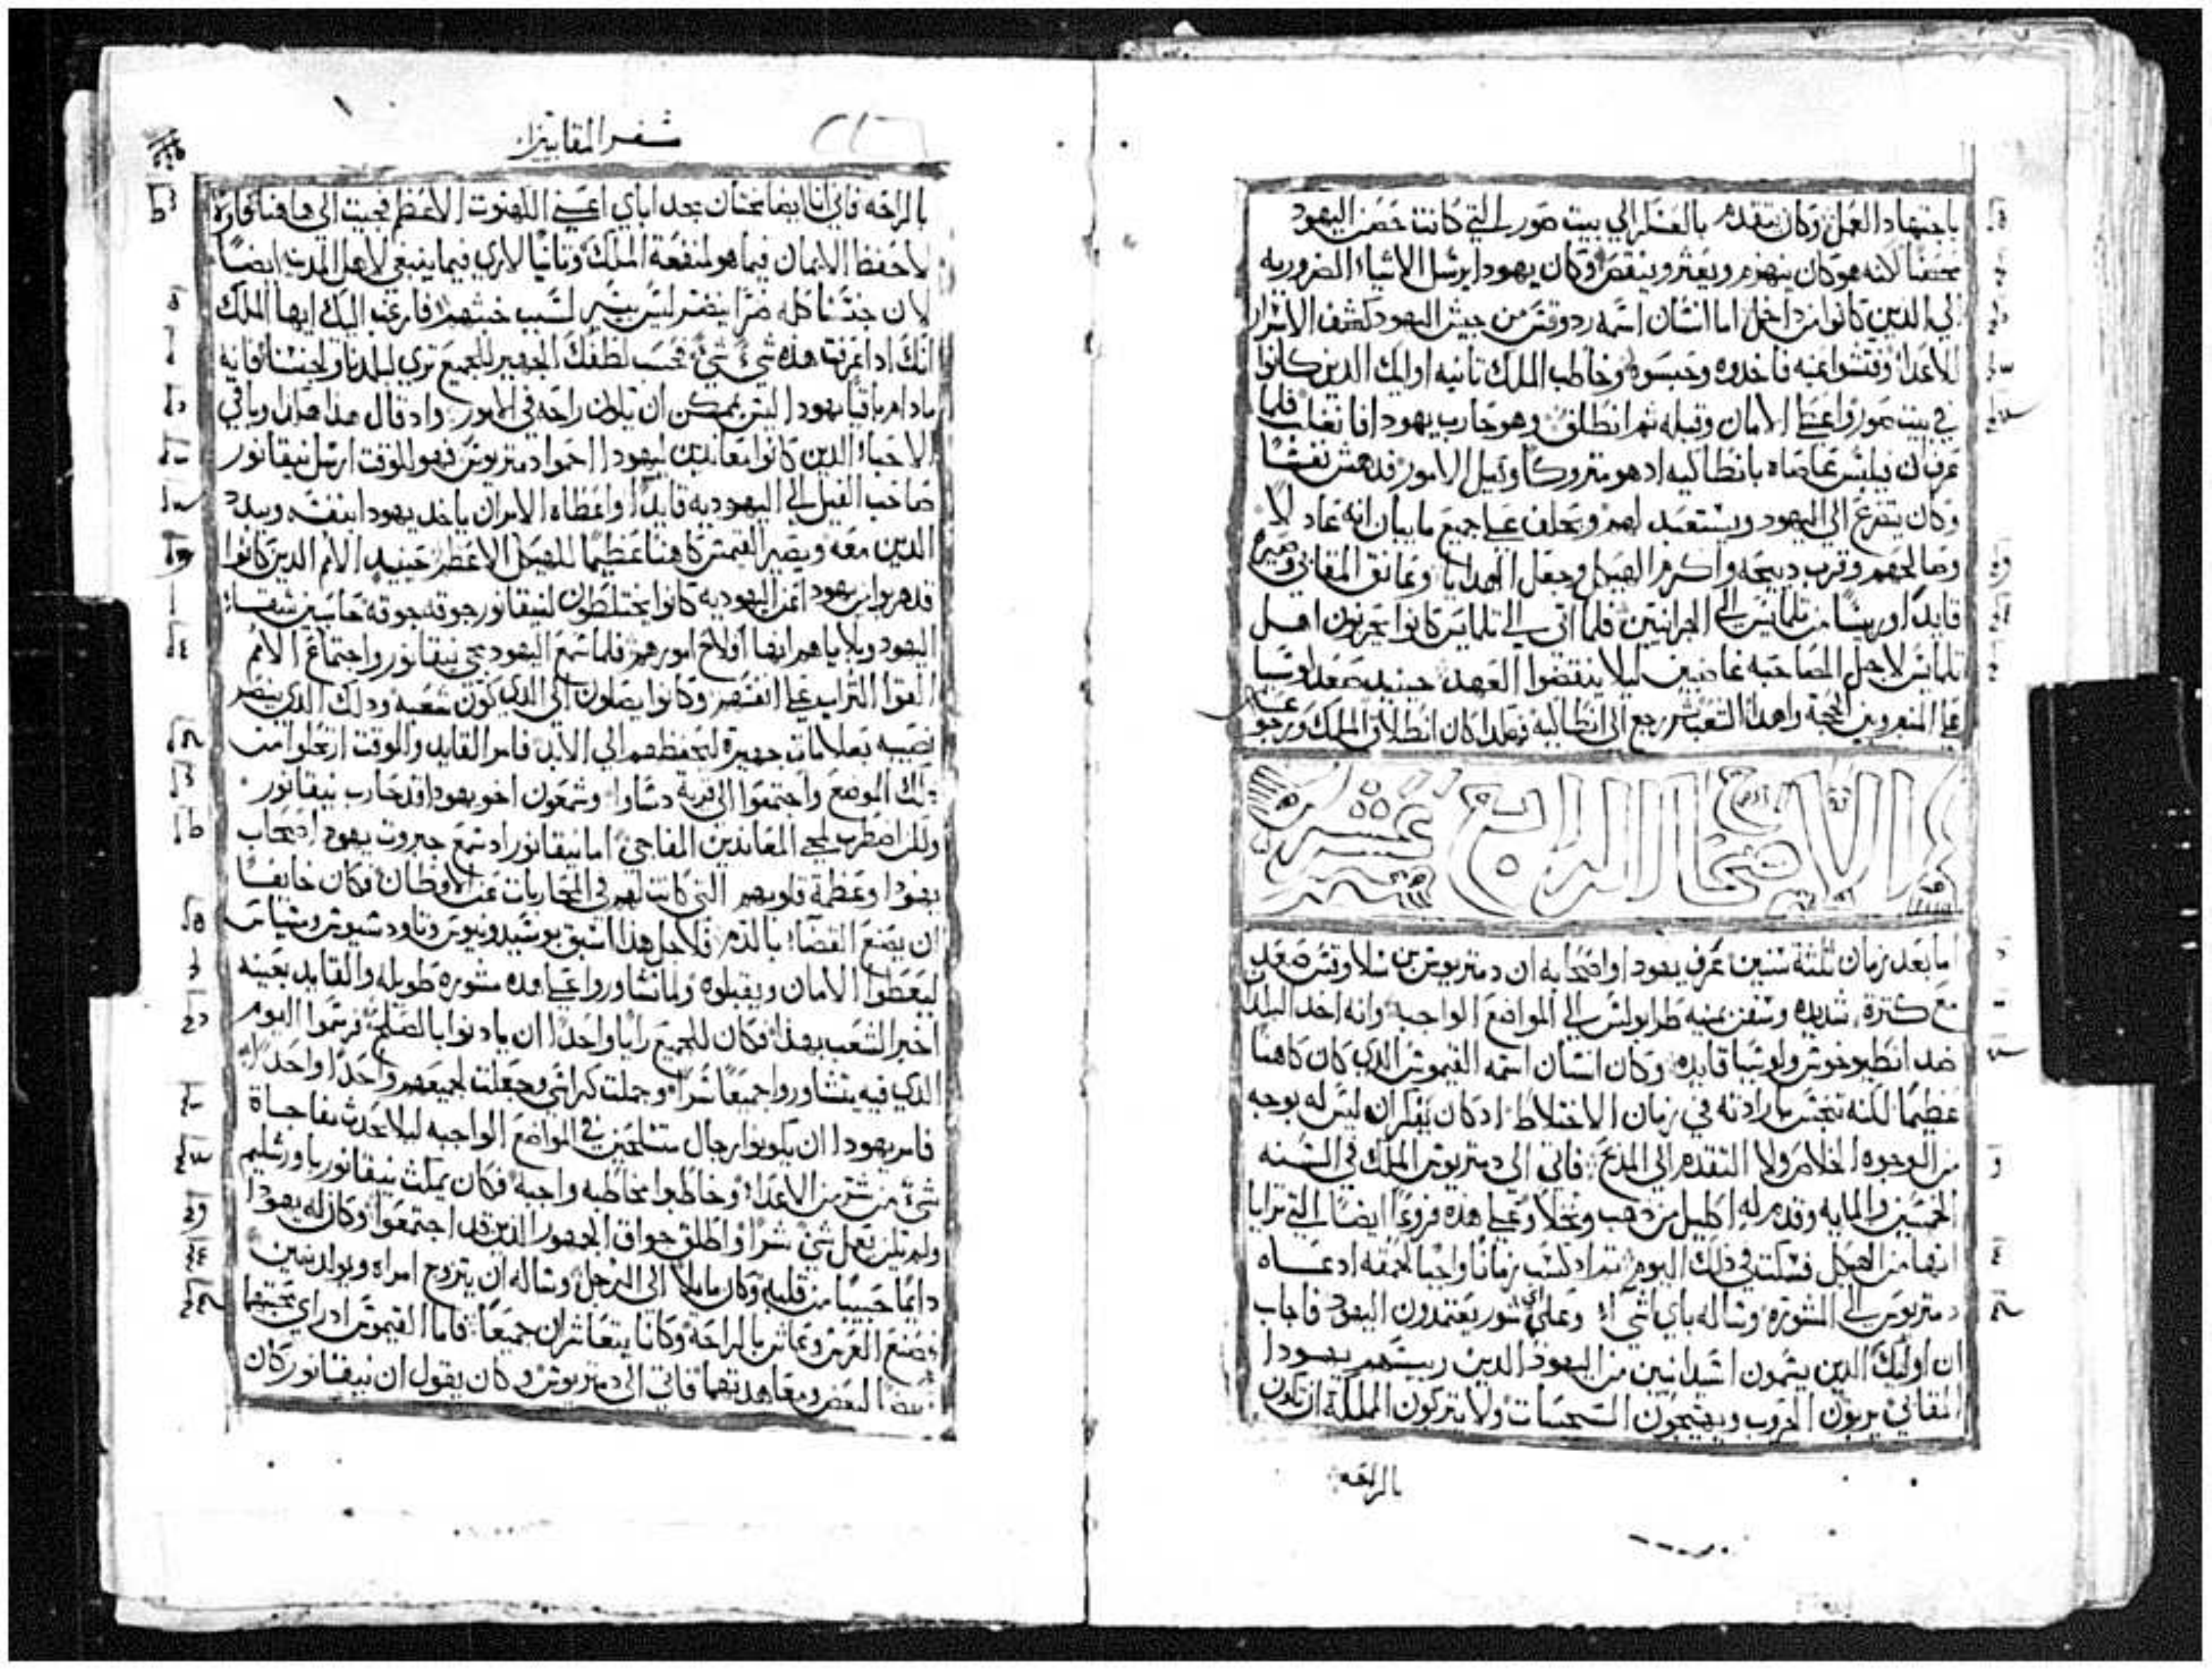 باجتهاد العمل وكان يتقدم بالعسكر الي بيت صور التي كانت حصن اليهود
محصنا لانه هو كان ينهزم ويعثر وينقص وكان يهودا يرسل الاشياء الضروريه
الي الدين كانوا من داخل اما انسان اسمه ردوقس من جيش اليهود كشف الاسرار
للاعدا وفتشوا عنه فاخدوه وحبسوه وخاطب الملك تانيه اوليك الدين كانوا
في بيت صور واعطي الامان وقبله تم انطلق وهو حارب يهودا فانغلب فلما
عرف ان فيلبس عاصاه بانطاكيه اد هو متروكا وكيل الامور فدهش نفسا
وكان يتضرع الي اليهود ويستعبد لهم ويحلف علي جميع ما يبان انه عادلا
وصالحهم وقرب دبيحه واكرم الهيكل وجعل الهدايا وعانق المقابي وصيره
قايدا وريسا من تلمايس الي الجرانيين فلما اتي الي تلمايس كانوا يحزنون اهل
تلمايس لاجل المصاحبه غاضبين ليلا ينقضوا العهد حينيد صعد لوسيا
علي المنبر وبين الحجة واهدا الشعب ثم رجع الي انطاكيه فهكدا كان انطلاق الملك ورجوعه
الاصحاح الرابع عشر
اما بعد زمان تلتة سنين عرف يهودا واصحابه ان دمتريوس بن سلاوقس صعد
مع كترة شديده وسفن بمينه طرابولس الي المواضع الواجبه وانه اخد البلدا
ضد انطيوخوس ولوسيا قايده وكان انسان اسمه القيموس الدي كان كاهنا
عظيما لكنه تنجس بارادته في زمان الاختلاط اد كان يفكر ان ليس له بوجه
من الوجوه الخلاص ولا التقدم الي المدبح فاتي الي دمتريوس الملك في السنه
الخمسين والمايه وقدم له اكليل من دهب ونخلا وعلي هده فروعا ايضا التي ترايا
انها من الهيكل فسكت في دلك اليوم تم اد كسب زمانا واجبا لحمقه اد دعاه
دمتريوس الي المشورة وساله باي اشيا وعلي اي شور يعتمدون اليهود فاجاب
ان اوليك الدين يسمون اشيدانيين من اليهود الدين رييسهم يهودا
المقابي يربون الحروب ويهيجون السجسات ولا يتركون المملكة ان تكون
بالراحه
سفر المقابيين
بالراحه فاني انا ايضا بحد اباي اعني الكهنوت الاعظم فجيت الي هاهنا فتارة
لاحفظ الايمان فيما هو لمنفعة الملك وتانيا لاري فيما ينبغي لاهل المدن ايضا
لان جنسنا كله ضرا يضر ليس بيسير لسبب خبثهم فارغب اليك ايها الملك
انك ادا عرفت هده شي شي فحسب لطفك الجهير للجميع تري لبلدنا ولجنسنا فانه
ما دام باقيا يهودا ليس بممكن ان تكون راحه في الامور واد قال هدا هدا وباقي
الاحباء الدين كانوا معاندين ليهودا احموا دمتريوس فهو للوقت ارسل نيقانور
صاحب الفيل الي اليهوديه قايدا واعطاه الامر ان ياخد يهودا بنفسه ويبدد
الدين معه ويصير القيمس كاهنا عظيما للهيكل الاعظم حينيد الامم الدين كانوا
قد هربوا من يهودا عن اليهوديه كانوا يختلطون لنيقانور جوقه جوقه حاسبين شقاء
اليهود وبلاياهم انها افلاح امورهم فلما سمع اليهود بمجي نيقانور واجتماع الامم
القوا التراب علي انفسهم وكانوا يصلون الي الدي كون شعبه ودلك الدي ينصر
نصيبه بعلامات جهيرة ليحفظهم الي الابد فامر القايد وللوقت ارتحلوا من
دلك الموضع واجتمعوا الي قرية دساوا وشمعون اخو يهودا قد حارب نيقانور
ولكن اضطرب لمجي المعاندين المفاجي اما نيقانور اد سمع جبروت يهودا اصحاب
يهودا وعظمة قلوبهم التي كانت لهم في المحاربات عن الاوطان فكان خايفا
ان يصنع القضا بالدم فلاجل هدا اسبق بوسيدونيوس وتاودسيوس ومتياس
ليعطوا الامان ويقبلوه ولما تشاوروا علي هده مشوره طويله والقايد بعينه
اخبر الشعب بهدا فكان للجميع رايا واحدا ان يادنوا بالصلح فرسموا اليوم
الدي فيه يتشاوروا جميعا سرا وحملت كراسي وجعلت لجميعهم واحدا واحدا
فامر يهودا ان يكونوا رجال متسلحين في المواضع الواجبه ليلا يحدث بمفاجاة
شي من شر من الاعدا وخاطبوا مخاطبه واجبه فكان يمكث نيقانور باورشليم
ولم يكن يعمل شي شرا واطلق جواق الجمهور الدين قد اجتمعوا وكان له يهودا
دايما حبيبا من قلبه وكان مايلا الي الرجل وساله ان يتزوج امراه ويولد بنين
فصنع العرس وعاش بالراحة وكانا يتعاشران جميعا فاما القيموس اد راي محبتهما
بعضا لبعض ومعاهدتهما فاتي الي دمتريوس وكان يقول ان نيقانور كان